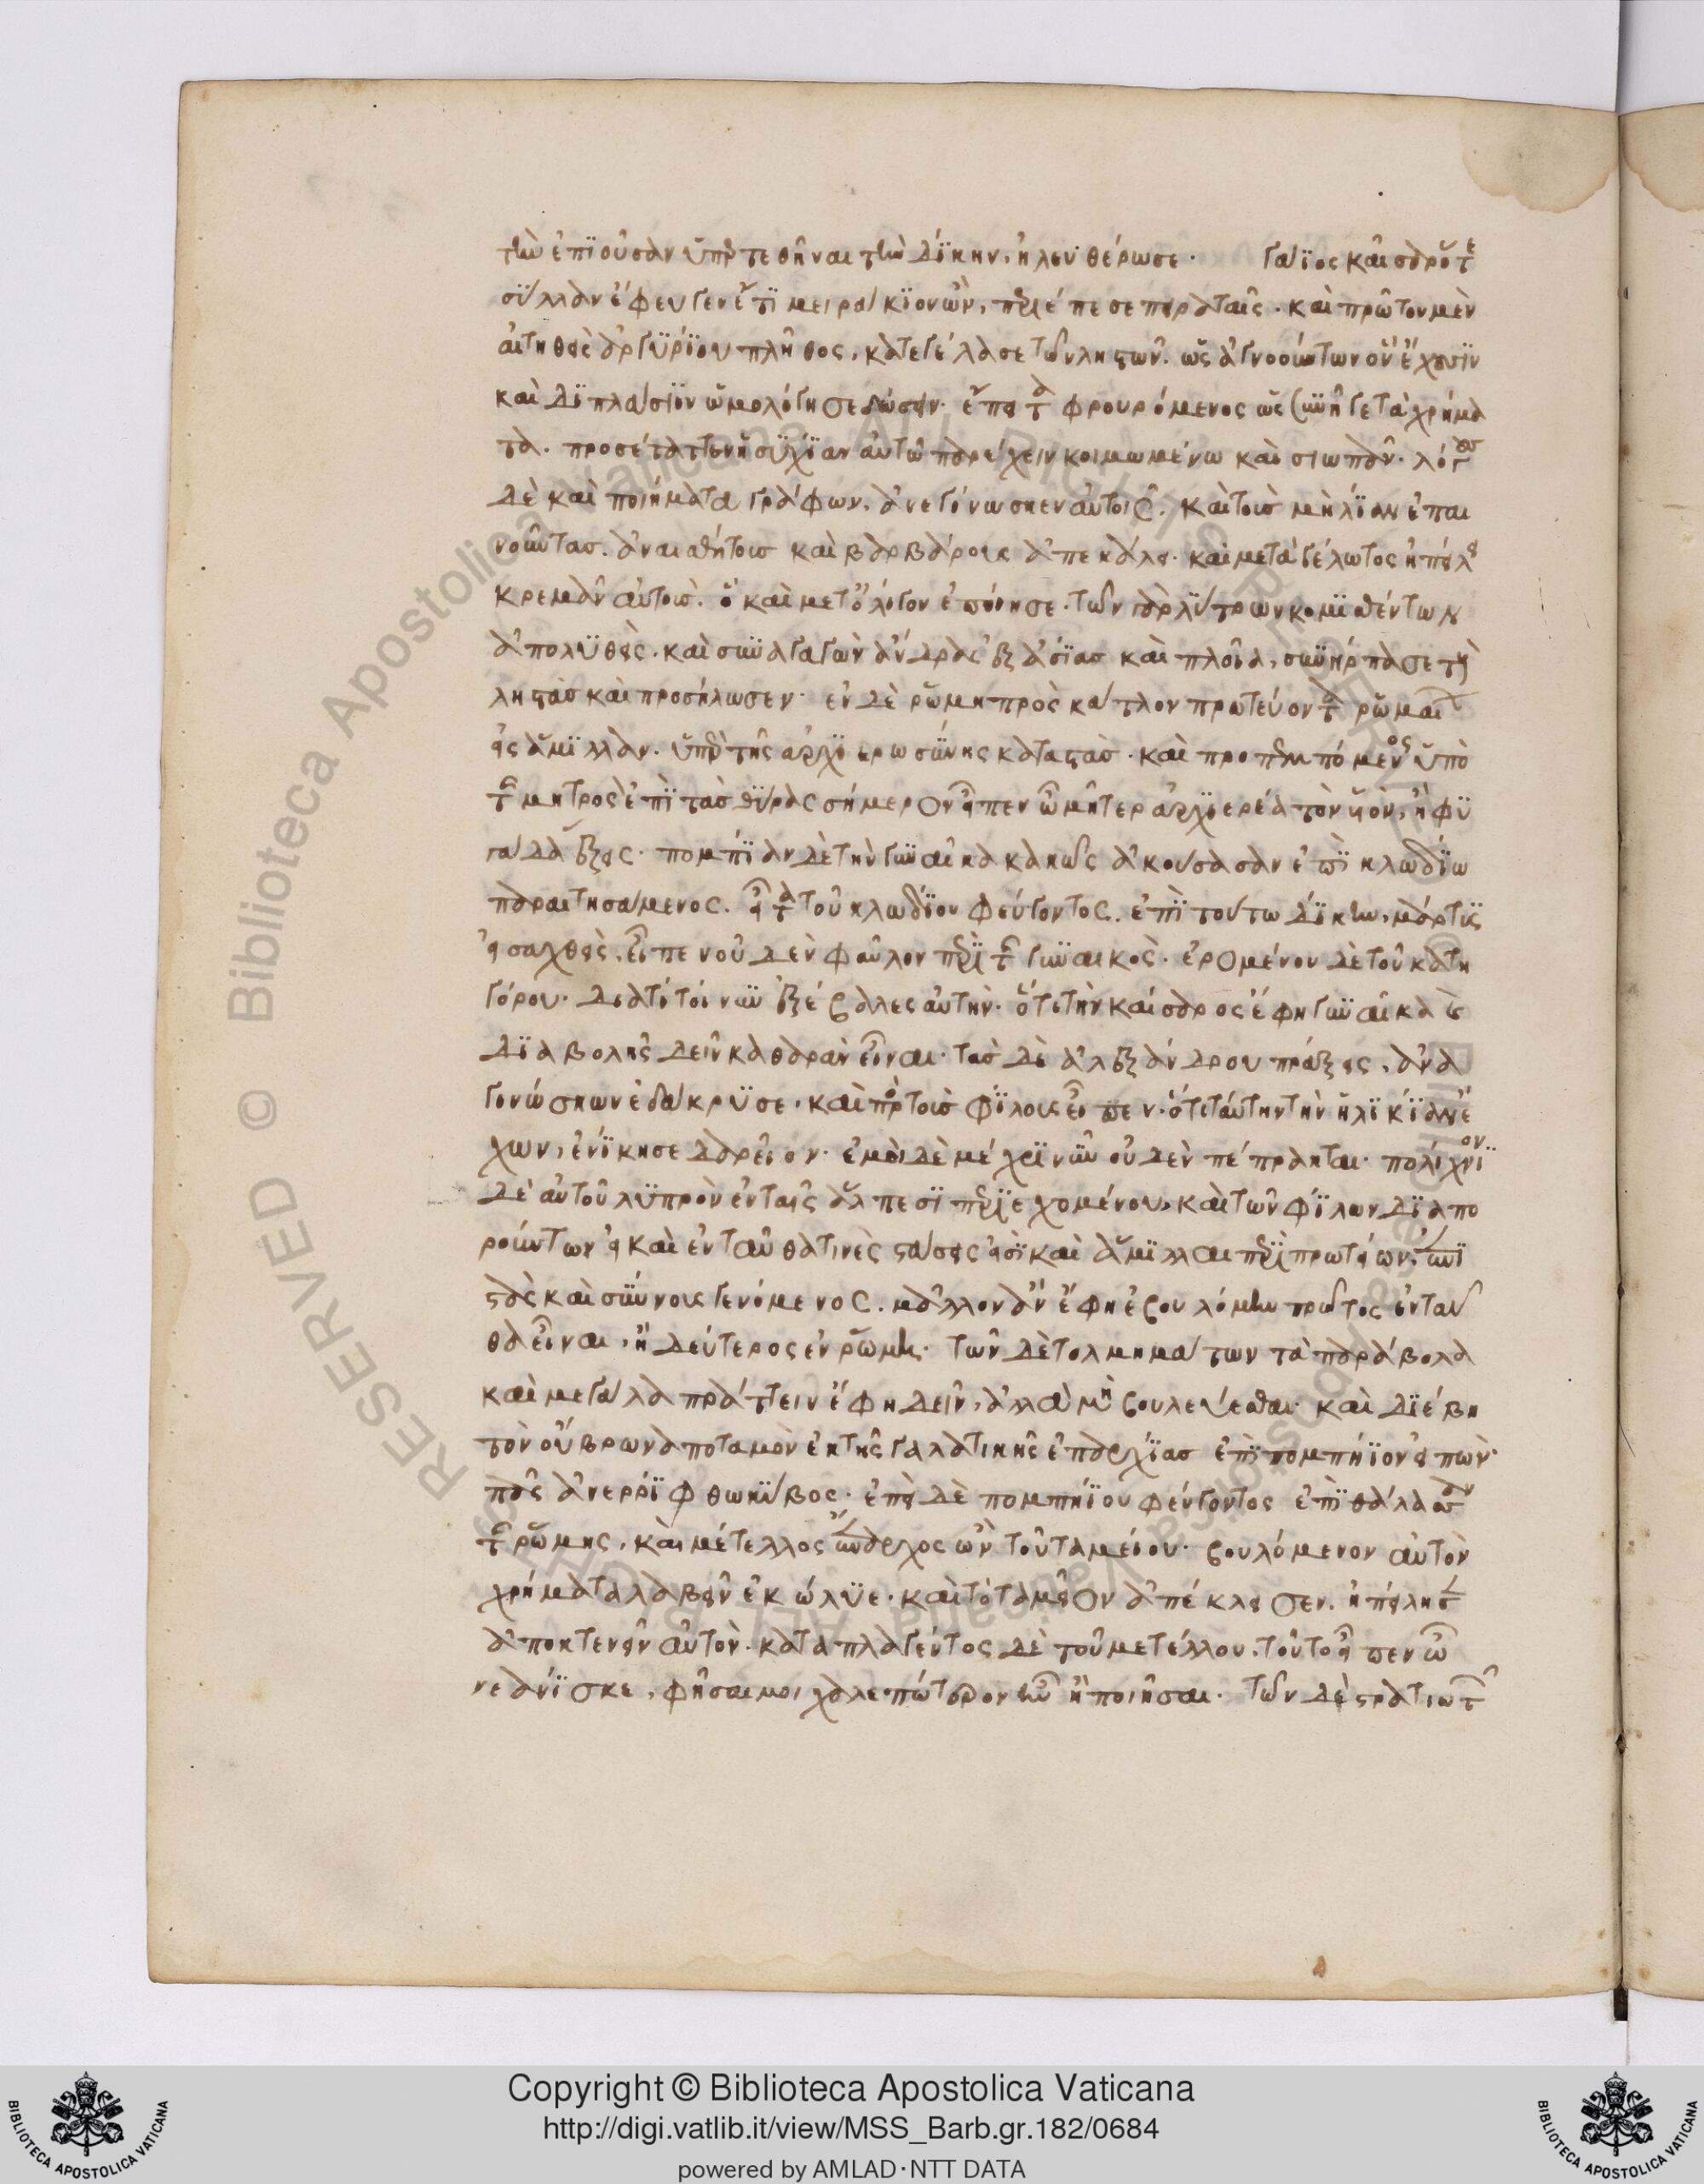 τὴν ἐπϊοῦσαν ὑπερτεθῆναι τὴν δΐκην, ἠλευθέρωσε. Γάϊος καῖσαρ ὅτε
σύλλαν ἔφευγεν ἔτϊ μειράκϊον ὢν, περιέπεσε πειραταῖς. καὶ πρῶτον μὲν
αἰτηθεὶς ἀργϋρΐου πλῆθος, κατεγέλασε τῶν ληστῶν. ὡς ἀγνοούντων ὃν ἔχουσϊν
καὶ δϊπλάσϊον ὡμολόγησε δώσειν. ἔπειτα φρουρόμενος ὡς συνῆγε τὰ χρήμα
τα. προσέταττεν ἡσϋχΐαν αὐτῶ παρέχειν κοιμωμένω καὶ σιωπᾶν. λόγους
δὲ καὶ ποιήματα γράφων, ἀνεγίνωσκεν αὐτοῖς. καὶ τοὺς μὴ λΐαν ἐπαι
νοῦντασ. ἀναισθήτουσ καὶ βαρβάρους ἀπεκάλει. καὶ μετὰ γέλωτος ἠπείλει
κρεμᾶν αὐτούσ. ὃ καὶ μετ' ὀλίγον ἐποίησε. τῶν γὰρ λΰτρων κομϊσθέντων
ἀπολϋθεὶς. καὶ συναγαγὼν ἄνδρας ἐξ ἀσΐασ καὶ πλοῖα, συνήρπασε τοὺς
ληστὰσ καὶ προσήλωσεν. ἐν δὲ ῥώμη πρὸς κάτλον πρωτεύοντα ῥωμαίων
εἰς ἅμϊλλαν. ὑπὲρ τῆς ἀρχϊερωσΰνης καταστὰσ. καὶ προπεμπόμενος ὑπὸ
τῆς μητρὸς ἐπῒ τὰσ θΰρας σήμερον εἶπεν ὦ μῆτερ ἀρχϊερέα τὸν υἱὸν, ἢ φϋ
γάδα ἕξεις. πομπϊαν δὲ τὴν γυναῖκα κακῶς ἀκούσασαν ἐπῒ κλωδΐω
παραιτησάμενος. εἶτα τοῦ κλωδΐου φεύγοντος. ἐπῒ τούτω δΐκην, μάρτϋς
εἰσαχθεὶς, εἶπεν οὐδὲν φαῦλον περῒ τῆς γυναικὸς. ἐρομένου δὲ τοῦ κατη
γόρου. διατί τοίνυν ἐξέβαλες αὐτὴν. ὅτι τὴν καίσαρος ἔφη γυναῖκα καὶ
δϊαβολῆς δεῖν καθαρὰν εἶναι. τὰσ δὲ ἀλεξάνδρου πράξεις, ἀνα
γινώσκων ἐδάκρϋσε. καὶ πρὸς τοὺσ φΐλους εἶπεν. ὅτι ταύτην τὴν ἡλϊκΐαν ἔ
χων, ἐνΐκησε δαρεῖον. ἐμοὶ δὲ μέχρϊ νῦν οὐδὲν πέπρακται. πολίχνϊον
δὲ αὐτοῦ λϋπρὸν ἐν ταῖς ἄλπεσϊ περϊεχομένου, καὶ τῶν φΐλων δϊαπο
ρούντων εἰ καὶ ἐνταῦθα τινὲς στάσεις εἰσῒ καὶ ἅμϊλλαι περῒ πρωτείων, ἐπϊ
στὰς καὶ σύννους γενόμενος. μᾶλλον ἂν ἔφη ἐβουλόμην πρῶτος ἐνταῦ
θα εἶναι, ἢ δεύτερος ἐν ῥώμη. τῶν δὲ τολμημάτων τὰ παράβολα
καὶ μεγάλα πράττειν ἔφη δεῖν, ἀλλὰ μὴ βουλεύεσθαι. καὶ δϊέβη
τὸν οὔβρωνα ποταμὸν ἐκ τῆς γαλατικῆς ἐπαρχΐασ ἐπῒ πομπήϊον εἰπὼν.
πᾶς ἀνερρΐφθω κΰβος. ἐπεὶ δὲ πομπηΐου φεύγοντος ἐπῒ θάλασσαν
τῆς ῥώμης, καὶ μέτελλος ἔπαρχος ὢν τοῦ ταμείου. βουλόμενον αὐτὸν
χρήματα λαβεῖν ἐκώλϋε. καὶ τὸ ταμεῖον ἀπέκλεισεν. ἠπείλησεν
ἀποκτενεῖν αὐτὸν. καταπλαγέντος δὲ τοῦ μετέλλου. τοῦτο εἶπεν ὦ
νεανΐσκε, φῆσαι μοι χαλεπώτερον ἦν ἢ ποιῆσαι. τῶν δὲ στρατιωτῶν
Copyright © Biblioteca Apostolica Vaticana
http://digi.vatlib.it/view/MSS_Barb.gr.182/0684
powered by AMLAD·NTT DATA